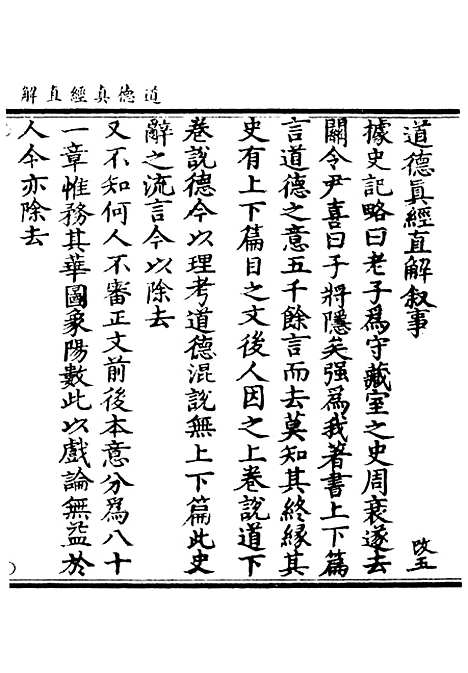 道德真經直解
道德眞經直解叙事
改五
據史記略曰老子爲守藏室之史周衰遂去
關令尹喜曰子將隱矣强爲我著書上下篇
言道德之意五千餘言而去莫知其終緣其
史有上下篇目之文後人因之上卷說道下
卷說德今以理考道德混說無上下篇此史
辭之流言今以除去
又不知何人不審正文前後本意分爲八十
一章惟務其華圖象陽數此以戲論無益於
人今亦除去